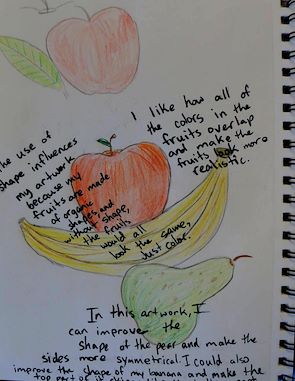 I like how all of
the colors in the
fruits overlap
and make the
fruits look more
realistic.
use of
shape influences
my artwork
because my
fruits are made
of organic
shapes, and
without shape,
the fruits
would all
look the same,
just color.
In this artwork, I
can improve the
shape of the pear and make the
sides more symmetrical. I could also
improve the shape of my banana and make the
top part